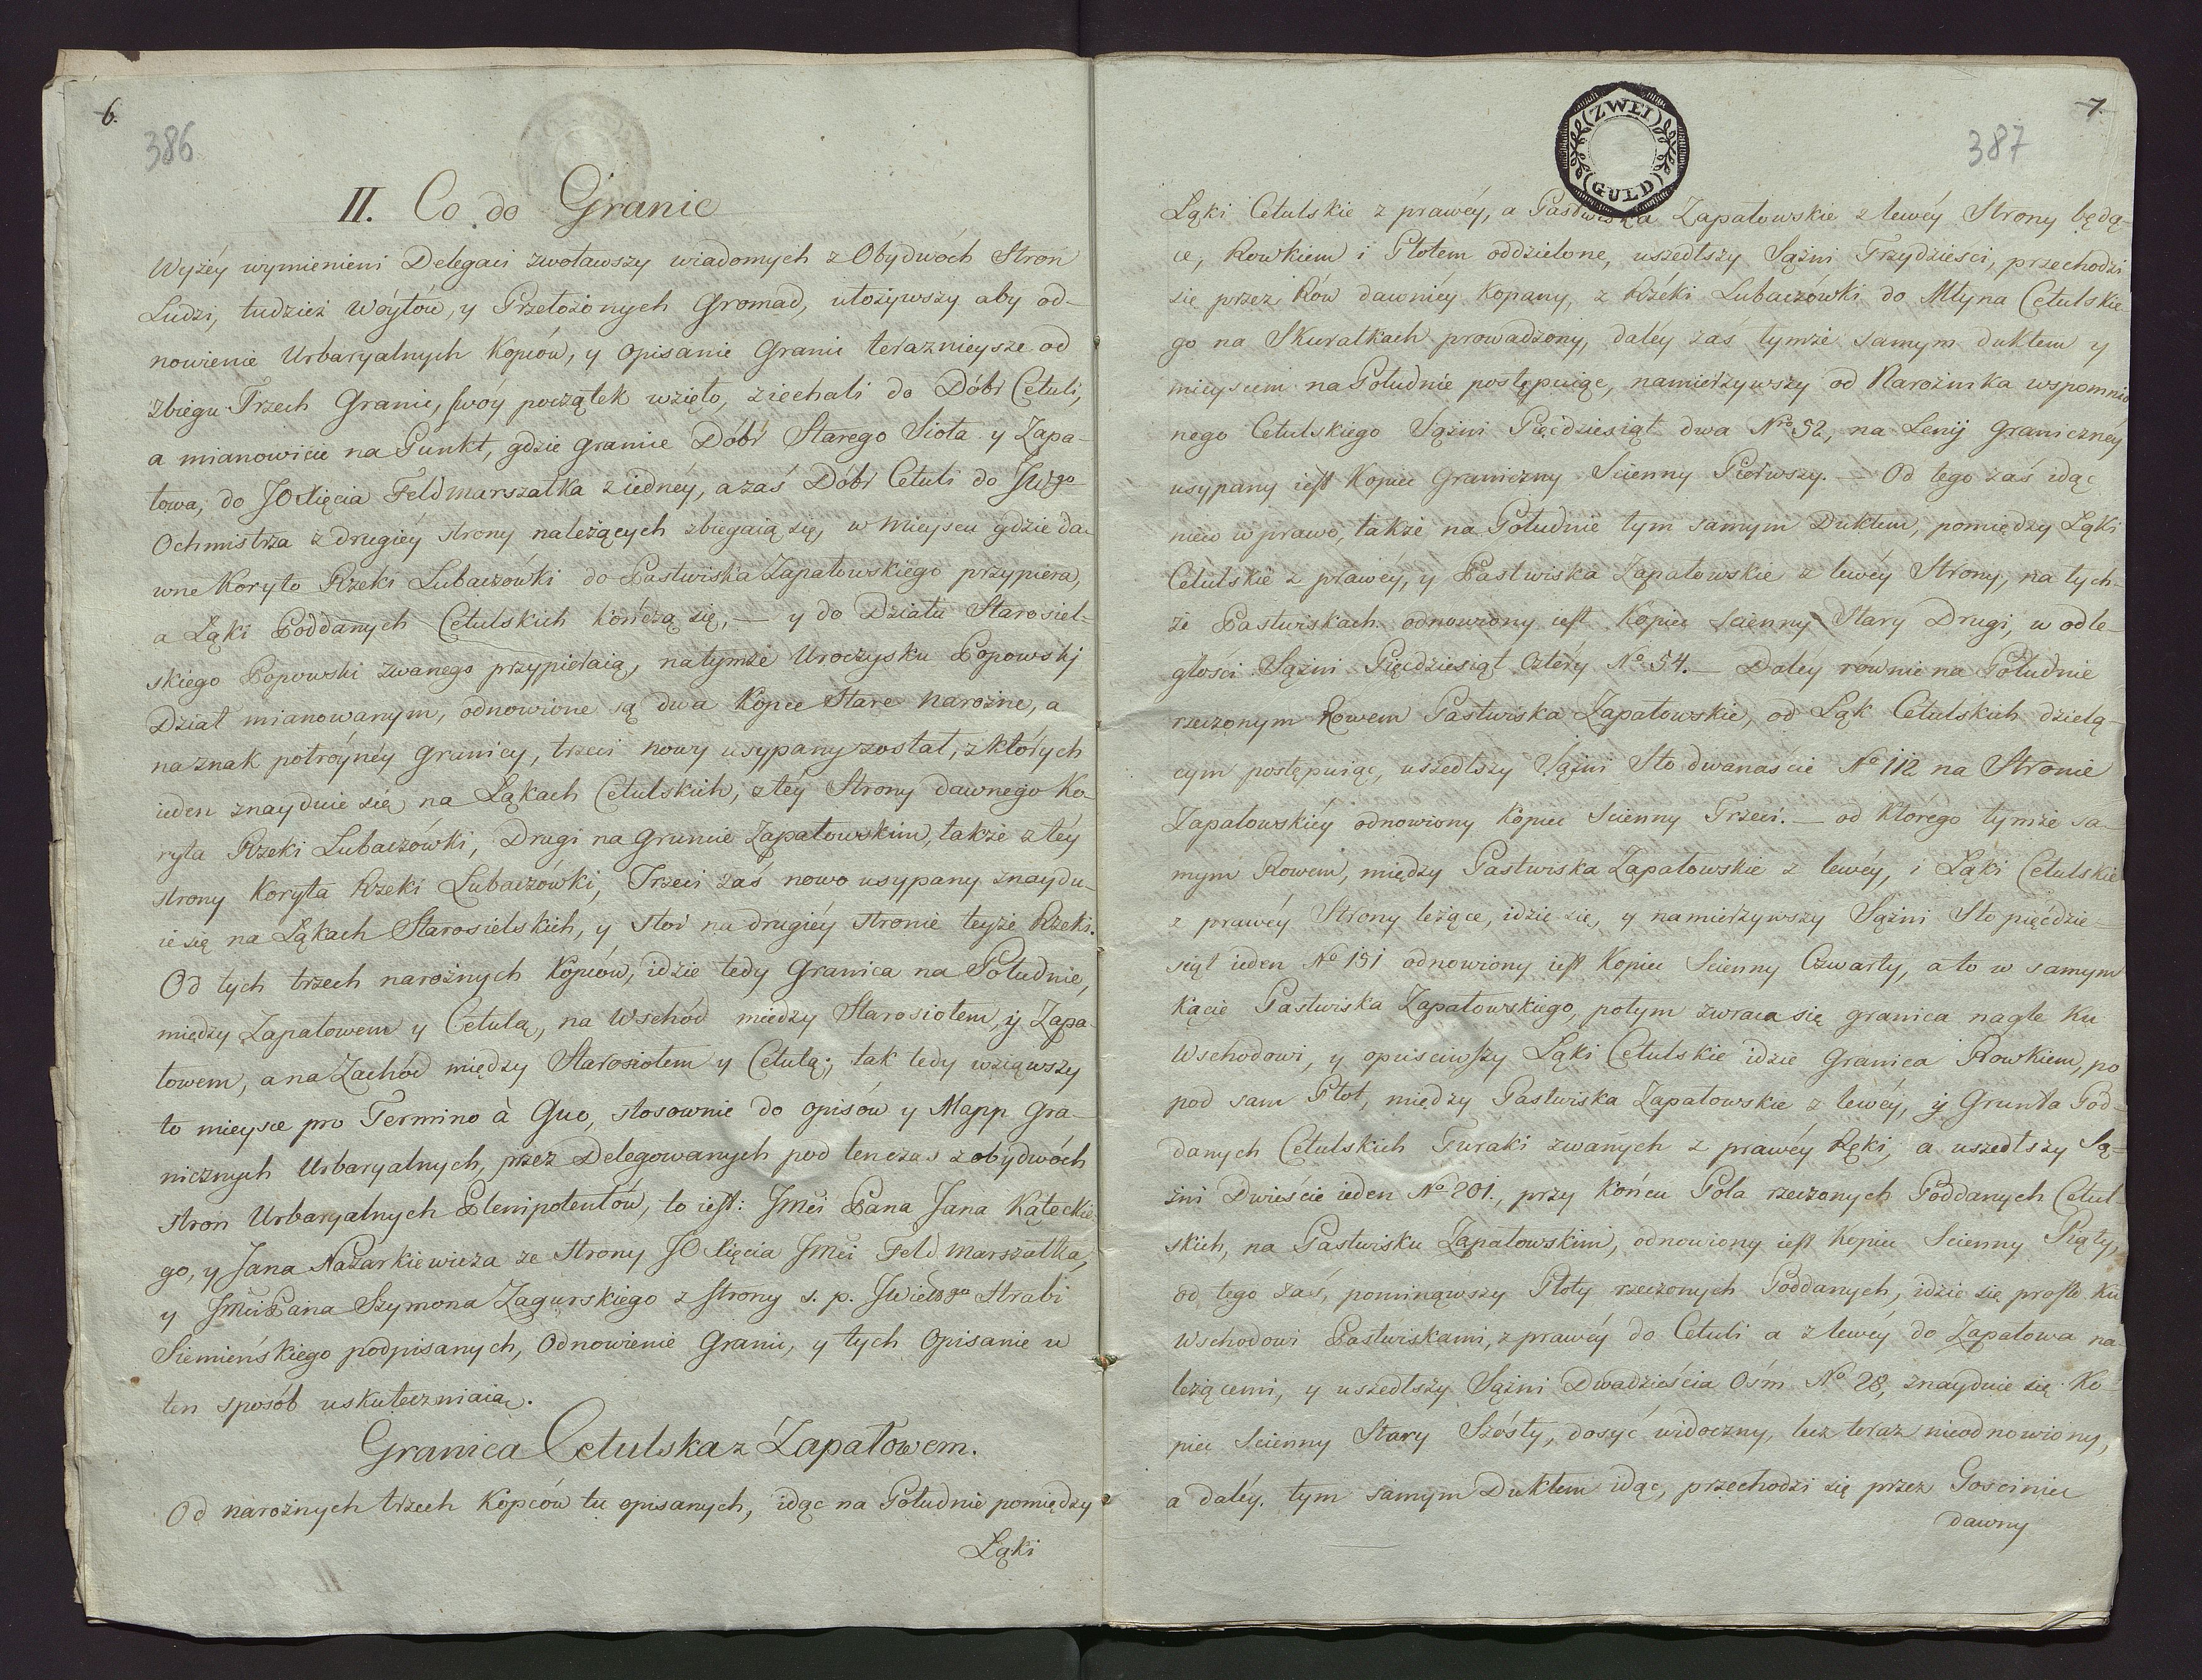 6.
386
II. Co do Granic
Wyżéy wymienieni Delegaci zwoławszy wiadomych z Obydwóch Stron
Ludzi, tudzież Wóytów, y Przełożonych Gromad, ułożywszy aby od-
nowienie Urbaryalnych Kopców, y opisanie Granic teraznieysze od
zbiegu Trzech Granic, swóy początek wzięło, ziechali do Dóbr Cetuli,
a mianowicie na Punkt, gdzie granice Dóbr Starego Sioła y Zapa-
łowa, do JO Xięcia Feldmarszałka z iednéy, a zaś Dóbr Cetuli do JWgo
Ochmistrza z drugiéy strony należących zbiegaią się, w mieyscu gdzie da-
wne Koryto Rzeki Lubaczówki do Pastwiska Zapałowskiego przypiera,
a Łąki Poddanych Cetulskich kończą się, — y do Działu Starosiel-
skiego Popowski zwanego przypieraią, na tymże Uroczysku Popowskj
Dział mianowanym, odnowione są dwa Kopce Stare narożne, a
na znak potróynéy granicy, trzeci nowy usypany został, z których
ieden znayduie się na Łąkach Cetulskich, z téy Strony dawnego Ko-
ryta Rzeki Lubaczówki, Drugi na gruncie Zapałowskim, także z téy
strony Koryta Rzeki Lubaczówki, Trzeci zaś nowo usypany znaydu-
ie się na Łąkach Starosielskich, y stoi na drugiéy stronie teyże Rzeki.
Od tych trzech narożnych Kopców, idzie tedy Granica na Południe,
między Zapałowem y Cetulą, na Wschód miedzy Starosiołem, ÿ Zapa-
łowem, a na Zachód między Starosiołem y Cetulą; tak tedy wziąwszy
to mieysce pro Termino à Quo, stosownie do opisów y Mapp Gra-
nicznych Urbaryalnych, przez Delegowanych pod ten czas z obydwóch
stron Urbaryalnych Plenipotentów, to iest: JMci Pana Jana Kąteckie-
go, y Jana Nazarkiewicza ze strony JO Xięcia JMci Feld Marszałka,
y JMci Pana Szymona Zagurskiego z strony s. p. Hrabi
Siemieńskiego podpisanych, Odnowienie Granic, y tych Opisanie w
ten sposób uskuteczniaią.
Granica Cetulska z Zapałowem.
Od narożnych trzech Kopców tu opisanych, idąc na Południe pomiędzy
Łąki
ZWEI
GULD
7.
387
Łąki Cetulskie z prawéy, a Pastwiska Zapałowskie z lewéy Strony będą-
ce, Rowkiem i Płotem oddzielone, uszedłszy Sążni Trzydziesci, przechodzi
się przez Rów dawniéy Kopany, z Rzéki Lubaczówki do Młyna Cetulskie-
go na Skuratkach prowadzony, daléy zaś tymże samym duktem y
mieyscem na Południe postępuiąc, namierzywszy od Narożnika wspomnio
nego Cetulskiego Sążni Pięćdziesiąt dwa Nro 52, na Lenij graniczney
usypany iest Kopiec Graniczny Scienny Pierwszy. — Od tego zaś idąc
nieco w prawo, także na Południe tym samym Duktem, pomiędzy Łąki
Cetulskie z prawéy, y Pastwiska Zapałowskie z lewéy Strony, na tych-
że Pastwiskach odnowiony iest Kopiec Scienny Stary Drugi, w odle-
głości Sążni Pięćdziesiąt cztéry No 54. — Daléy równie na Południe
rzeczonym Rowem Pastwiska Zapałowskie, od Łąk Cetulskich dzielą-
cym postępuiąc, uszedłszy Sążni Sto dwanaście No 112 na Stronie
Zapałowskiéy odnowiony Kopiec Scienny Trzeci. — od którego tymże sa-
mym Rowem, między Pastwiska Zapałowskie z lewéy, i Łąki Cetulskie
z prawéy Strony leżące, idzie się, y namierzywszy Sążni Sto pięćdzie-
siąt ieden No 151 odnowiony iest Kopiec Scienny Czwarty, a to w samym
kącie Pastwiska Zapałowskiego, potym zwraca się granica nagle ku
Wschodowi, y opuściwszy Łąki Cetulskie idzie Granica Rowkiem, po
pod sam Płot, między Pastwiska Zapałowskie z lewéy, ÿ Grunta Pod-
danych Cetulskich Furaki zwanych z prawéy Ręki, a uszedłszy Są-
żni Dwieście ieden No 201., przy Końcu Pola rzeczonych Poddanych Cetul
skich, na Pastwisku Zapałowskim, odnowiony iest Kopiec Scienny Piąty,
od tego zaś, pominąwszy Płoty rzeczonych Poddanych, idzie się prosto ku
Wschodowi Pastwiskami, z prawéy do Cetuli a z lewéy do Zapałowa na-
leżącemi, y uszedłszy Sążni Dwadzieścia Ośm No 28, znayduie się Ko-
piec Scienny Stary Szósty, dosyć widoczny, lecz teraz nieodnowiony,
a daléy tym samym Duktem idąc, przechodzi się przez Gościniec
dawny